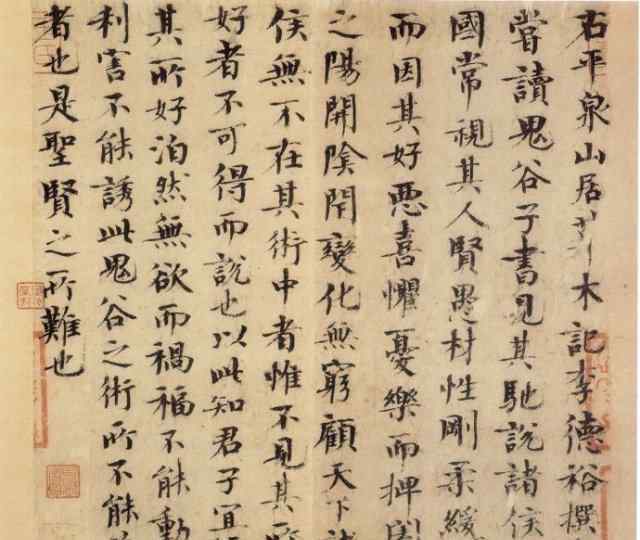 右平泉山居草木記李德裕撰
嘗讀鬼谷子書見其馳說諸侯
國常視其人賢愚材性剛柔緩
而因其好惡喜懼憂樂而捭闔
之陽開陰閉變化無窮顧天下
侯無不在其術中者惟不見其所
好者不可得而說也以此知君子宜
其所好泊然無欲而禍福不能動
利害不能誘此鬼谷之術所不能
者也是聖賢之所難也